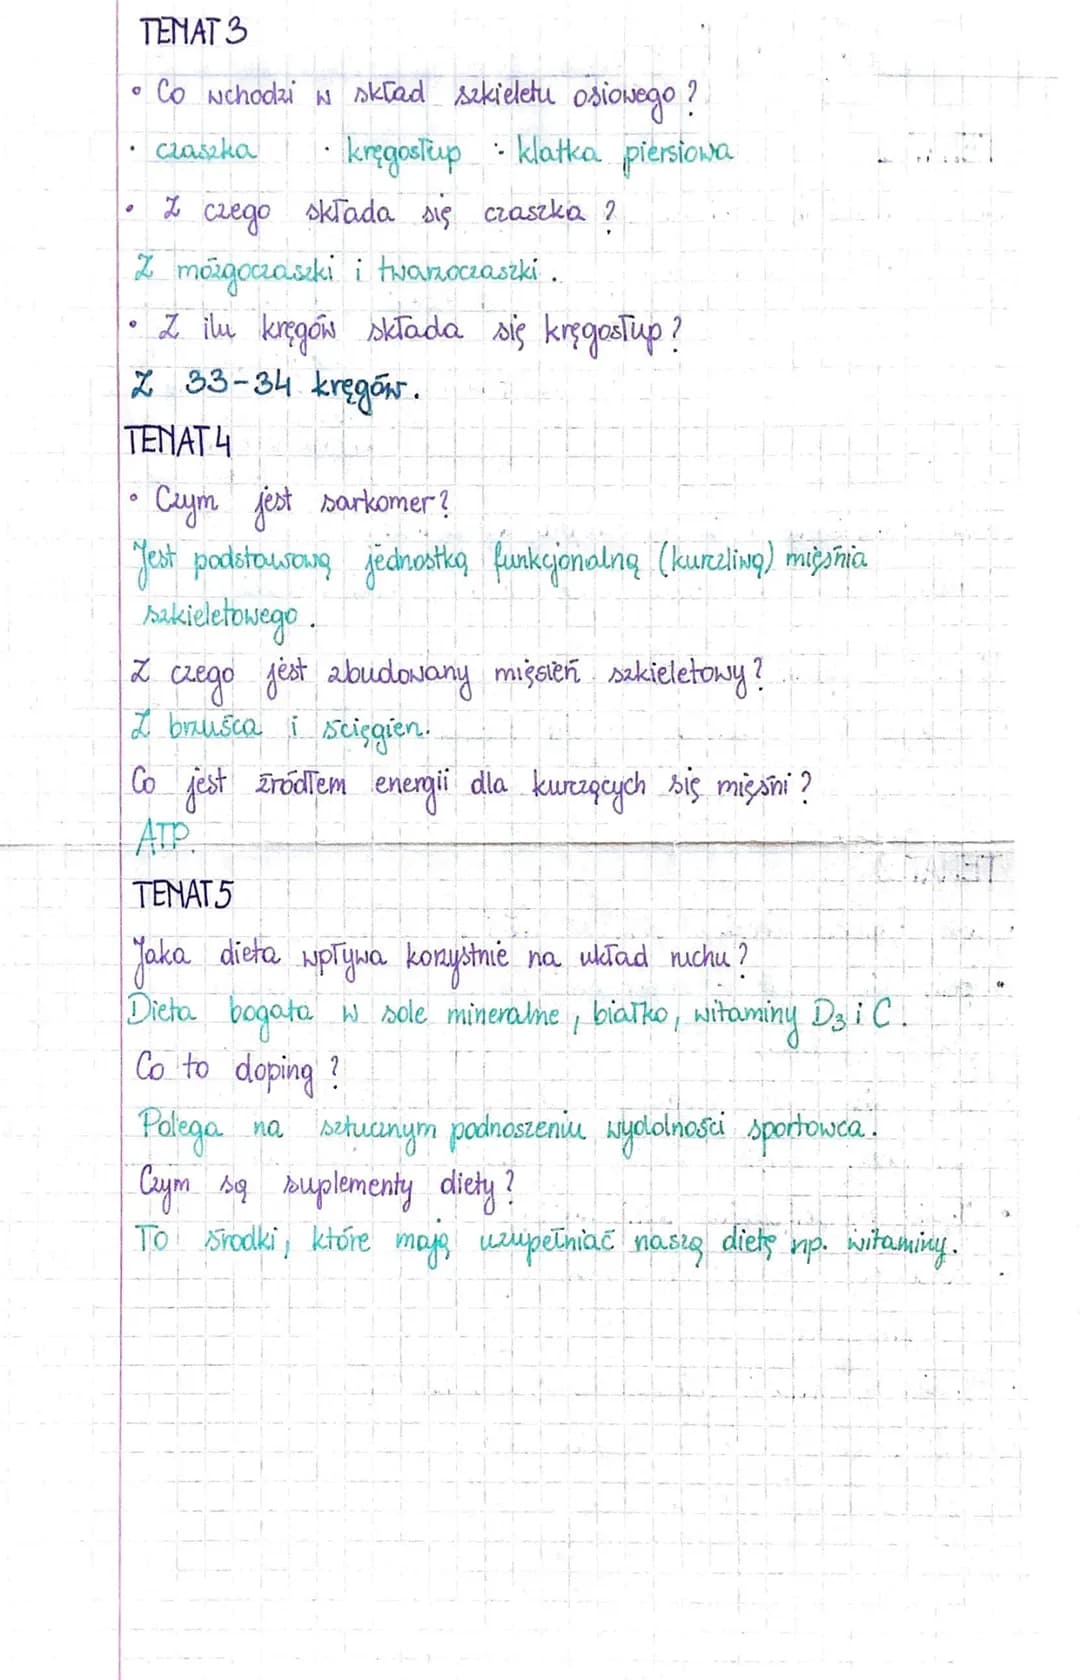 TEMAT 3
• Co wchodzi w skład szkieletu osiowego?
• czaszka • kręgosłup • klatka piersiowa
• Z czego składa się czaszka?
Z mózgoczaszki i twarzoczaszki.
• Z ilu kręgów składa się kręgosłup?
Z 33-34 kręgów.
TEMAT 4
• Czym jest sarkomer?
Jest podstawową jednostką funkcjonalną (kurczliwą) mięśnia
szkieletowego.
Z czego jest zbudowany mięsień szkieletowy?
Z brzuśca i ścięgien.
Co jest źródłem energii dla kurczących się mięśni?
ATP.
TEMAT 5
Jaka dieta wpływa korzystnie na układ ruchu?
Dieta bogata w sole mineralne, białko, witaminy D3 i C.
Co to doping?
Polega na sztucznym podnoszeniu wydolności sportowca.
Czym są suplementy diety?
To środki, które mają uzupełniać naszą dietę np. witaminy.